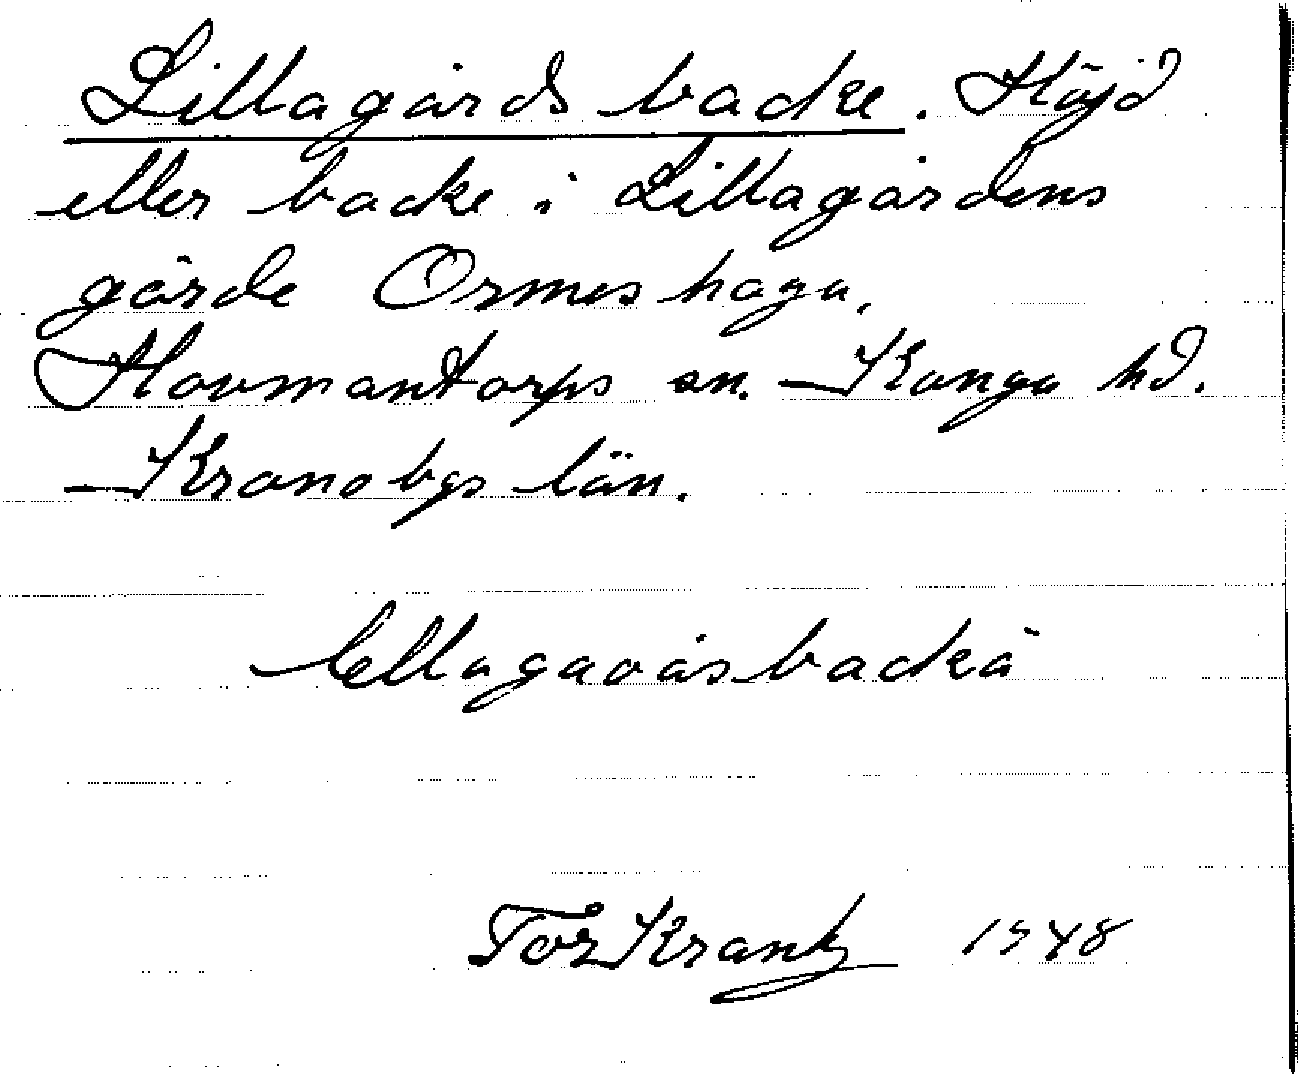 Lillagårds backe. Höjd
eller backe i Lillagårdens
gärde Ormeshaga.
Hovmantorps sn. Konga hd.
Kronobgs län.
lellagaoåsbackä
Tor Krantz 1948